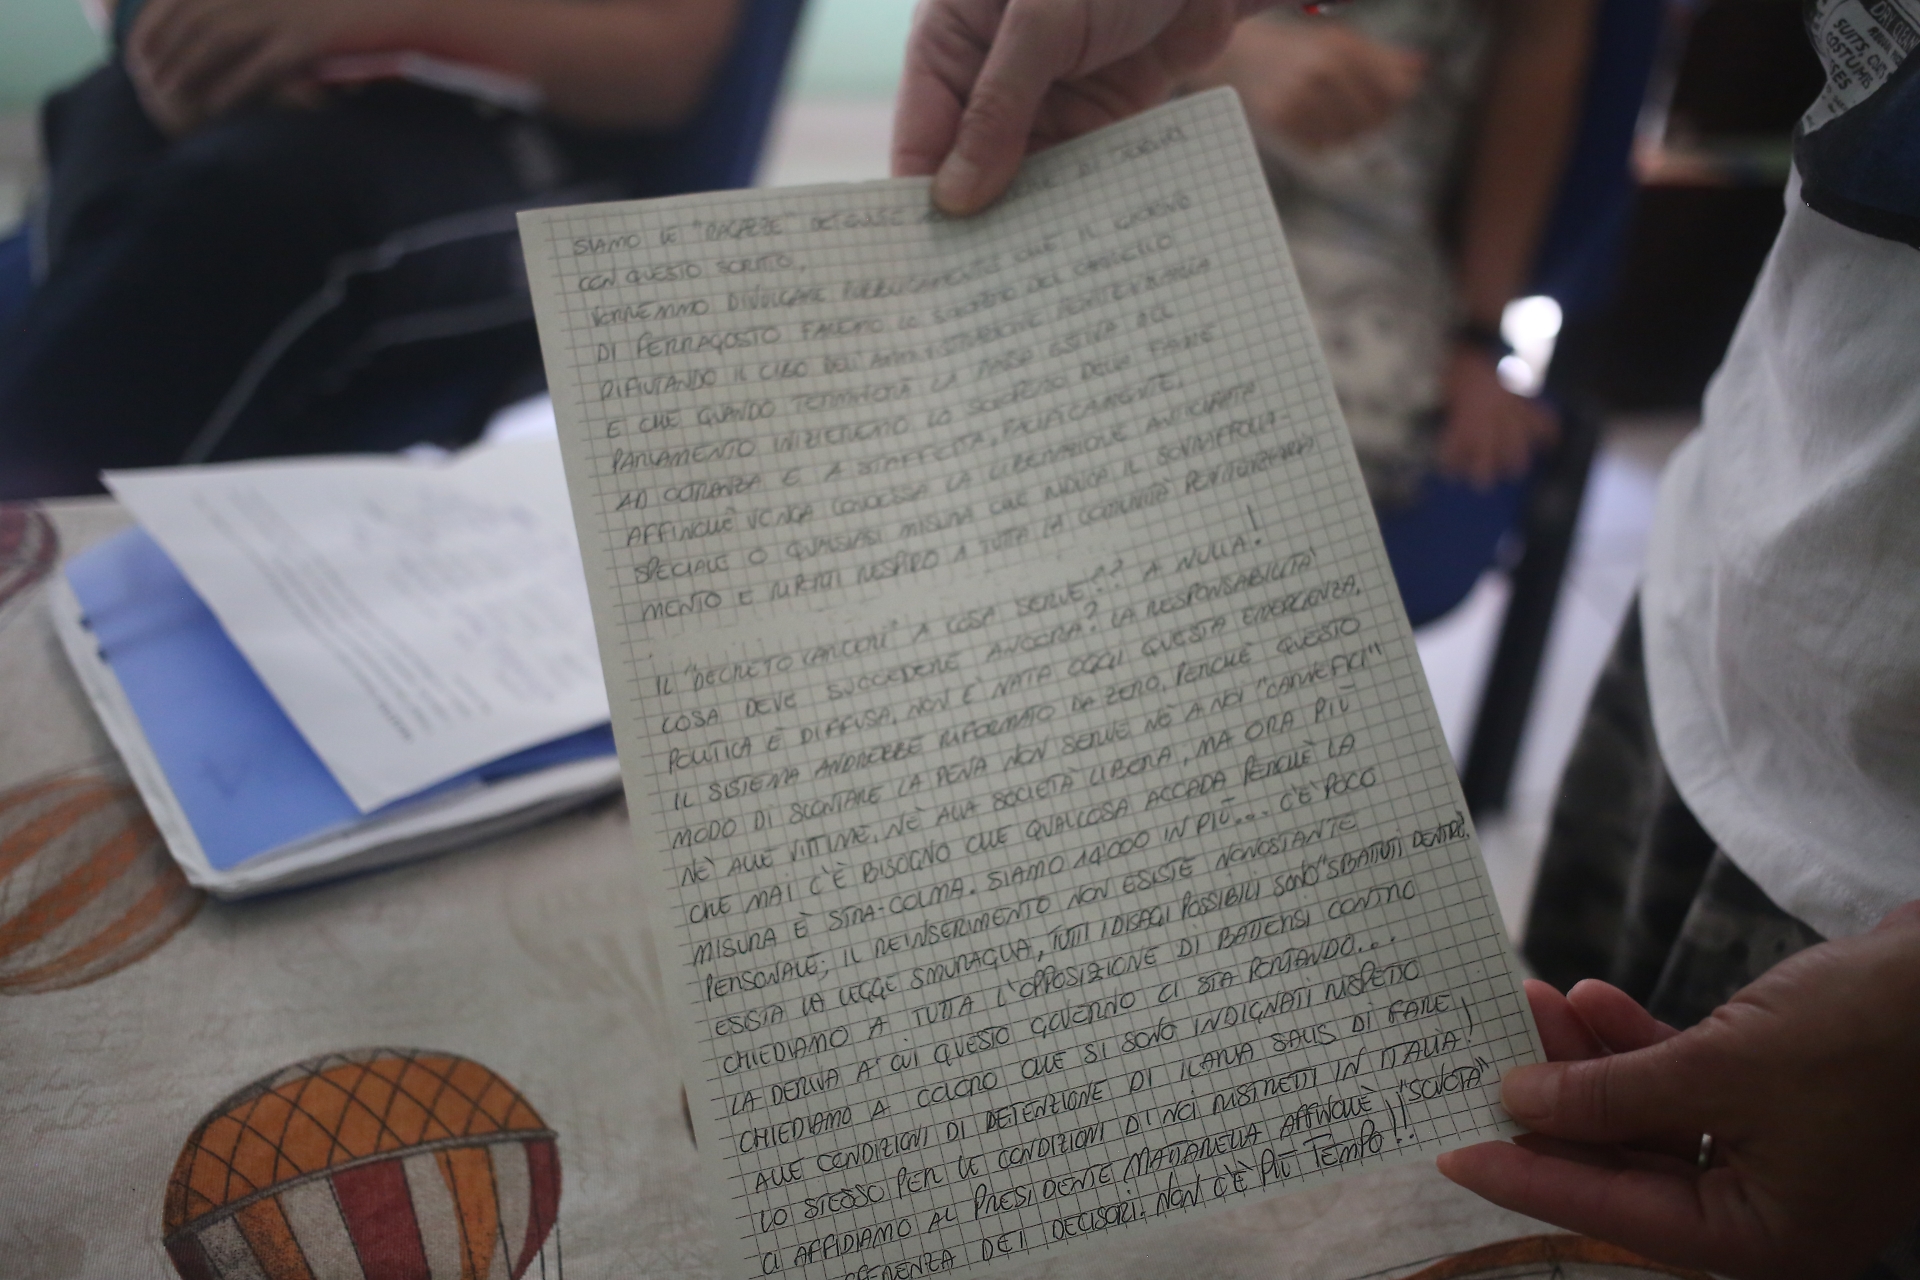 SIAMO LE "RAGAZZE" DETENUTE DI TORINO
CON QUESTO SCRITTO,
VORREMMO DIVULGARE PUBBLICAMENTE CHE IL GIORNO
DI FERRAGOSTO FAREMO LO SCIOPERO DEL CARRELLO
RIFIUTANDO IL CIBO DELL'AMMINISTRAZIONE PENITENZIARIA
E CHE QUANDO TERMINERÀ LA PAUSA ESTIVA DEL
PARLAMENTO INIZIEREMO LO SCIOPERO DELLA FAME
AD OLTRANZA E A STAFFETTA, PACIFICAMENTE,
AFFINCHÈ VENGA CONCESSA LA LIBERAZIONE ANTICIPATA
SPECIALE O QUALSIASI MISURA CHE RIDUCA IL SOVRAFFOLLA-
MENTO E RIDIA RESPIRO A TUTTA LA COMUNITÀ PENITENZIARIA
IL "DECRETO CARCERI" A COSA SERVE?? A NULLA!
COSA DEVE SUCCEDERE ANCORA? LA RESPONSABILITÀ
POLITICA È DIFFUSA, NON E' NATA OGGI QUESTA EMERGENZA.
IL SISTEMA ANDREBBE RIFORMATO DA ZERO, PERCHÈ QUESTO
MODO DI SCONTARE LA PENA NON SERVE NÈ A NOI "CARNEFICI"
NÈ ALLE VITTIME, NÈ ALLA SOCIETÀ LIBERA, MA ORA PIÙ
CHE MAI C'È BISOGNO CHE QUALCOSA ACCADA PERCHÈ LA
MISURA È STRA-COLMA. SIAMO 14000 IN PIÙ... C'È POCO
PERSONALE; IL REINSERIMENTO NON ESISTE NONOSTANTE
ESISTA LA LEGGE SMURAGLIA, TUTTI I DISAGI POSSIBILI SONO "SBATTUTI DENTRO".
CHIEDIAMO A TUTTA L'OPPOSIZIONE DI BATTERSI CONTRO
LA DERIVA A CUI QUESTO GOVERNO CI STA PORTANDO...
CHIEDIAMO A COLORO CHE SI SONO INDIGNATI RISPETTO
ALLE CONDIZIONI DI DETENZIONE DI ILARIA SALIS DI FARE
LO STESSO PER LE CONDIZIONI DI NOI RISTRETTI IN ITALIA!
CI AFFIDIAMO AL PRESIDENTE MATTARELLA AFFINCHÈ "SCUOTA"
DEI DECISORI. NON C'È PIÙ TEMPO!!
SUITS, DAY
COSTUMES